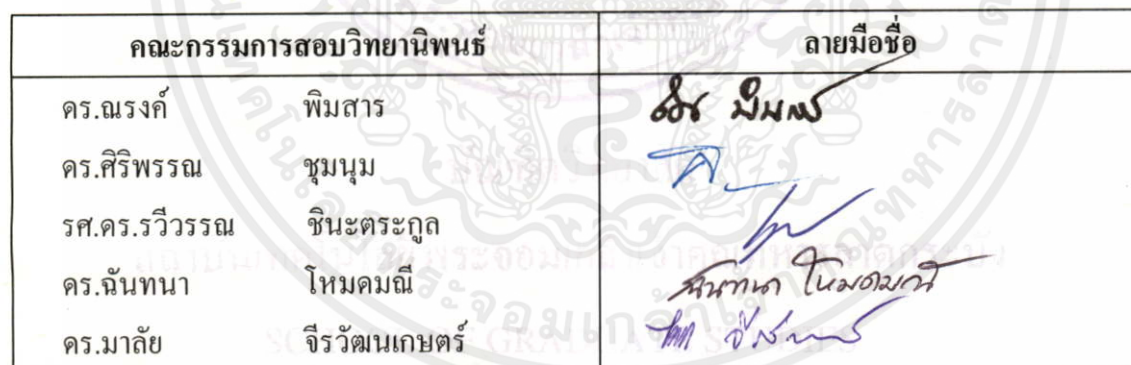 คณะกรรมการสอบวิทยานิพนธ์ ลายมือชื่อ
ดร.ณรงค์ พิมสาร
ดร.ศิริพรรณ ชุมนุม
รศ.ดร.รวีวรรณ ชินะตระกูล
ดร.ฉันทนา โหมดมณี ฉันทนา โหมดมณี
ดร.มาลัย จีรวัฒนเกษตร์